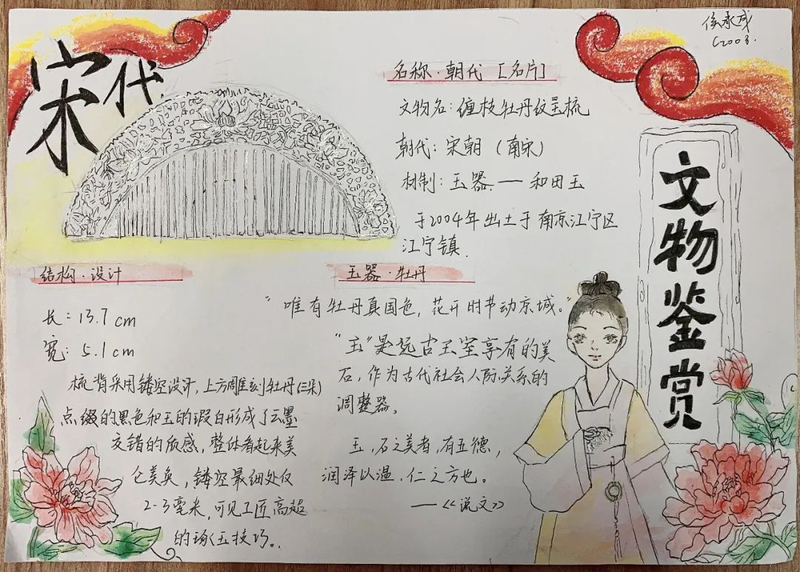 宋代
C2003.
名称·朝代 [名片]
文物名:缠枝牡丹纹玉梳
朝代:宋朝 (南宋)
材制:玉器 — 和田玉
于2004年出土于南京江宁区
江宁镇.
文物鉴赏
结构·设计
长:13.7cm
宽:5.1cm
梳背采用镂空设计,上方雕刻牡丹(三朵)
点缀的黑色和玉的瑕白形成了云墨
交错的质感,整体看起来美
仑美奂,镂空最细处仅
2-3毫米,可见工匠高超
的琢玉技巧。
玉器·牡丹
"唯有牡丹真国色,花开时节动京城。"
"玉"是远古王室享有的美
石,作为古代社会人际关系的
调整器。
玉,石之美者,有五德,
润泽以温,仁之方也。
——《说文》